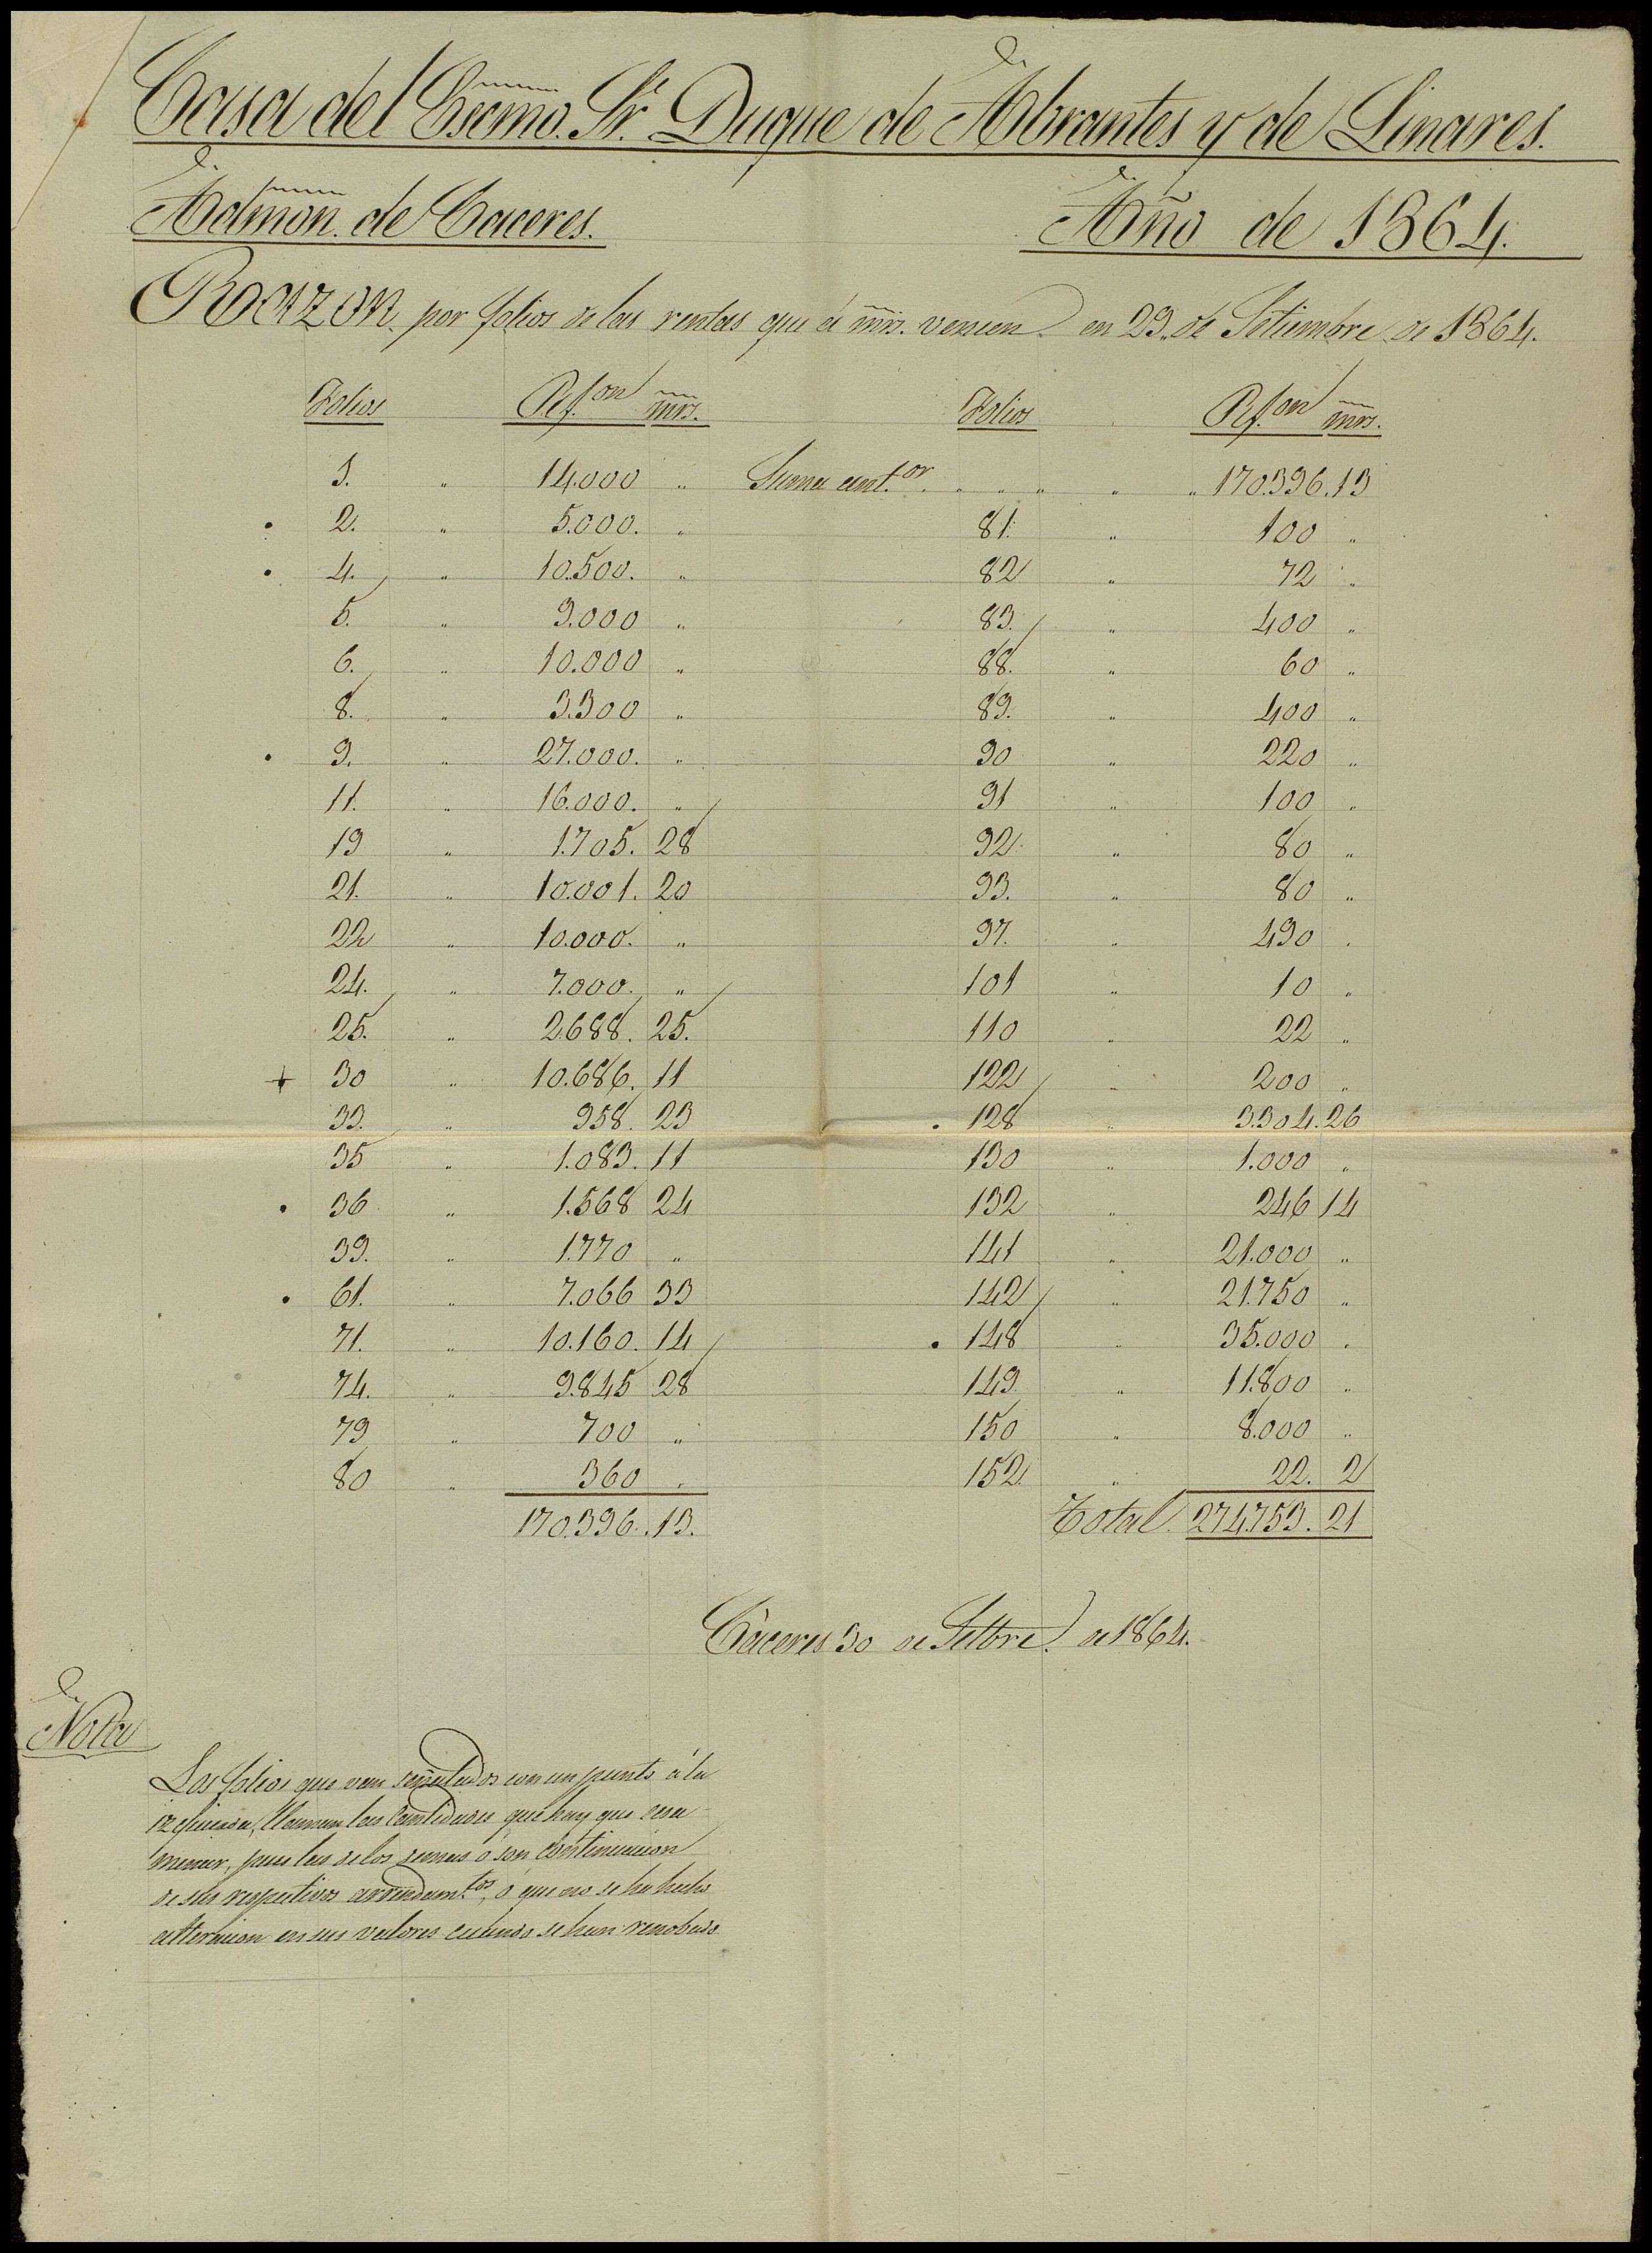 Casa del Escmo. Sr. Duque de Abrantes y de Linares.
Admon. de Caceres. Año de 1864.
Razon por folios de las rentas que á mrs. vencen en 29 de Setiembre de 1864.
Folios Rs. von mrs. Folios Rs. von mrs.
1. " 14.000 " Suma ant.or " 170.396.13
• 2. " 5.000. " 81. " 100 "
• 4. " 10.500. " 82 " 72 "
5. " 9.000 " 83. " 400 "
6. " 10.000 " 88. " 60 "
8. " 3.300 " 89. " 400 "
• 9. " 27.000. " 90 " 220 "
11. " 16.000. " 91 " 100 "
19 " 1.705. 28 92 " 80 "
21. " 10.001. 20 93. " 80 "
22 " 10.000. " 97. " 490 "
24. " 7.000. " 101 " 10 "
25. " 2.688. 25. 110 " 22 "
+ 30 " 10.686. 11 122 " 200 "
33. " 958. 23 • 128 " 3.304.26
35 " 1.083. 11 130 " 1.000 "
• 36 " 1.568 24 132 " 246 14
39. " 1.770 " 141 " 21.000 "
• 61. " 7.066 33 142 " 21.750 "
71. " 10.160. 14 • 148 " 35.000 "
74. " 9.845 28 149 " 11.800 "
79 " 700 " 150 " 8.000 "
80 " 360 " 152 " 22. 2
170.396.13. Total. 274.753. 21
Cáceres 30 de Setbre. de 1864.
Nota
Los folios que van señalados con un punto á la
izquierda, llaman las cantidades que hay que exa-
minar, pues las de los demas ó son continuacion
de sus respectivos arrendam.tos, ó que no se ha hecho
alteracion en sus valores cuando se han renobado